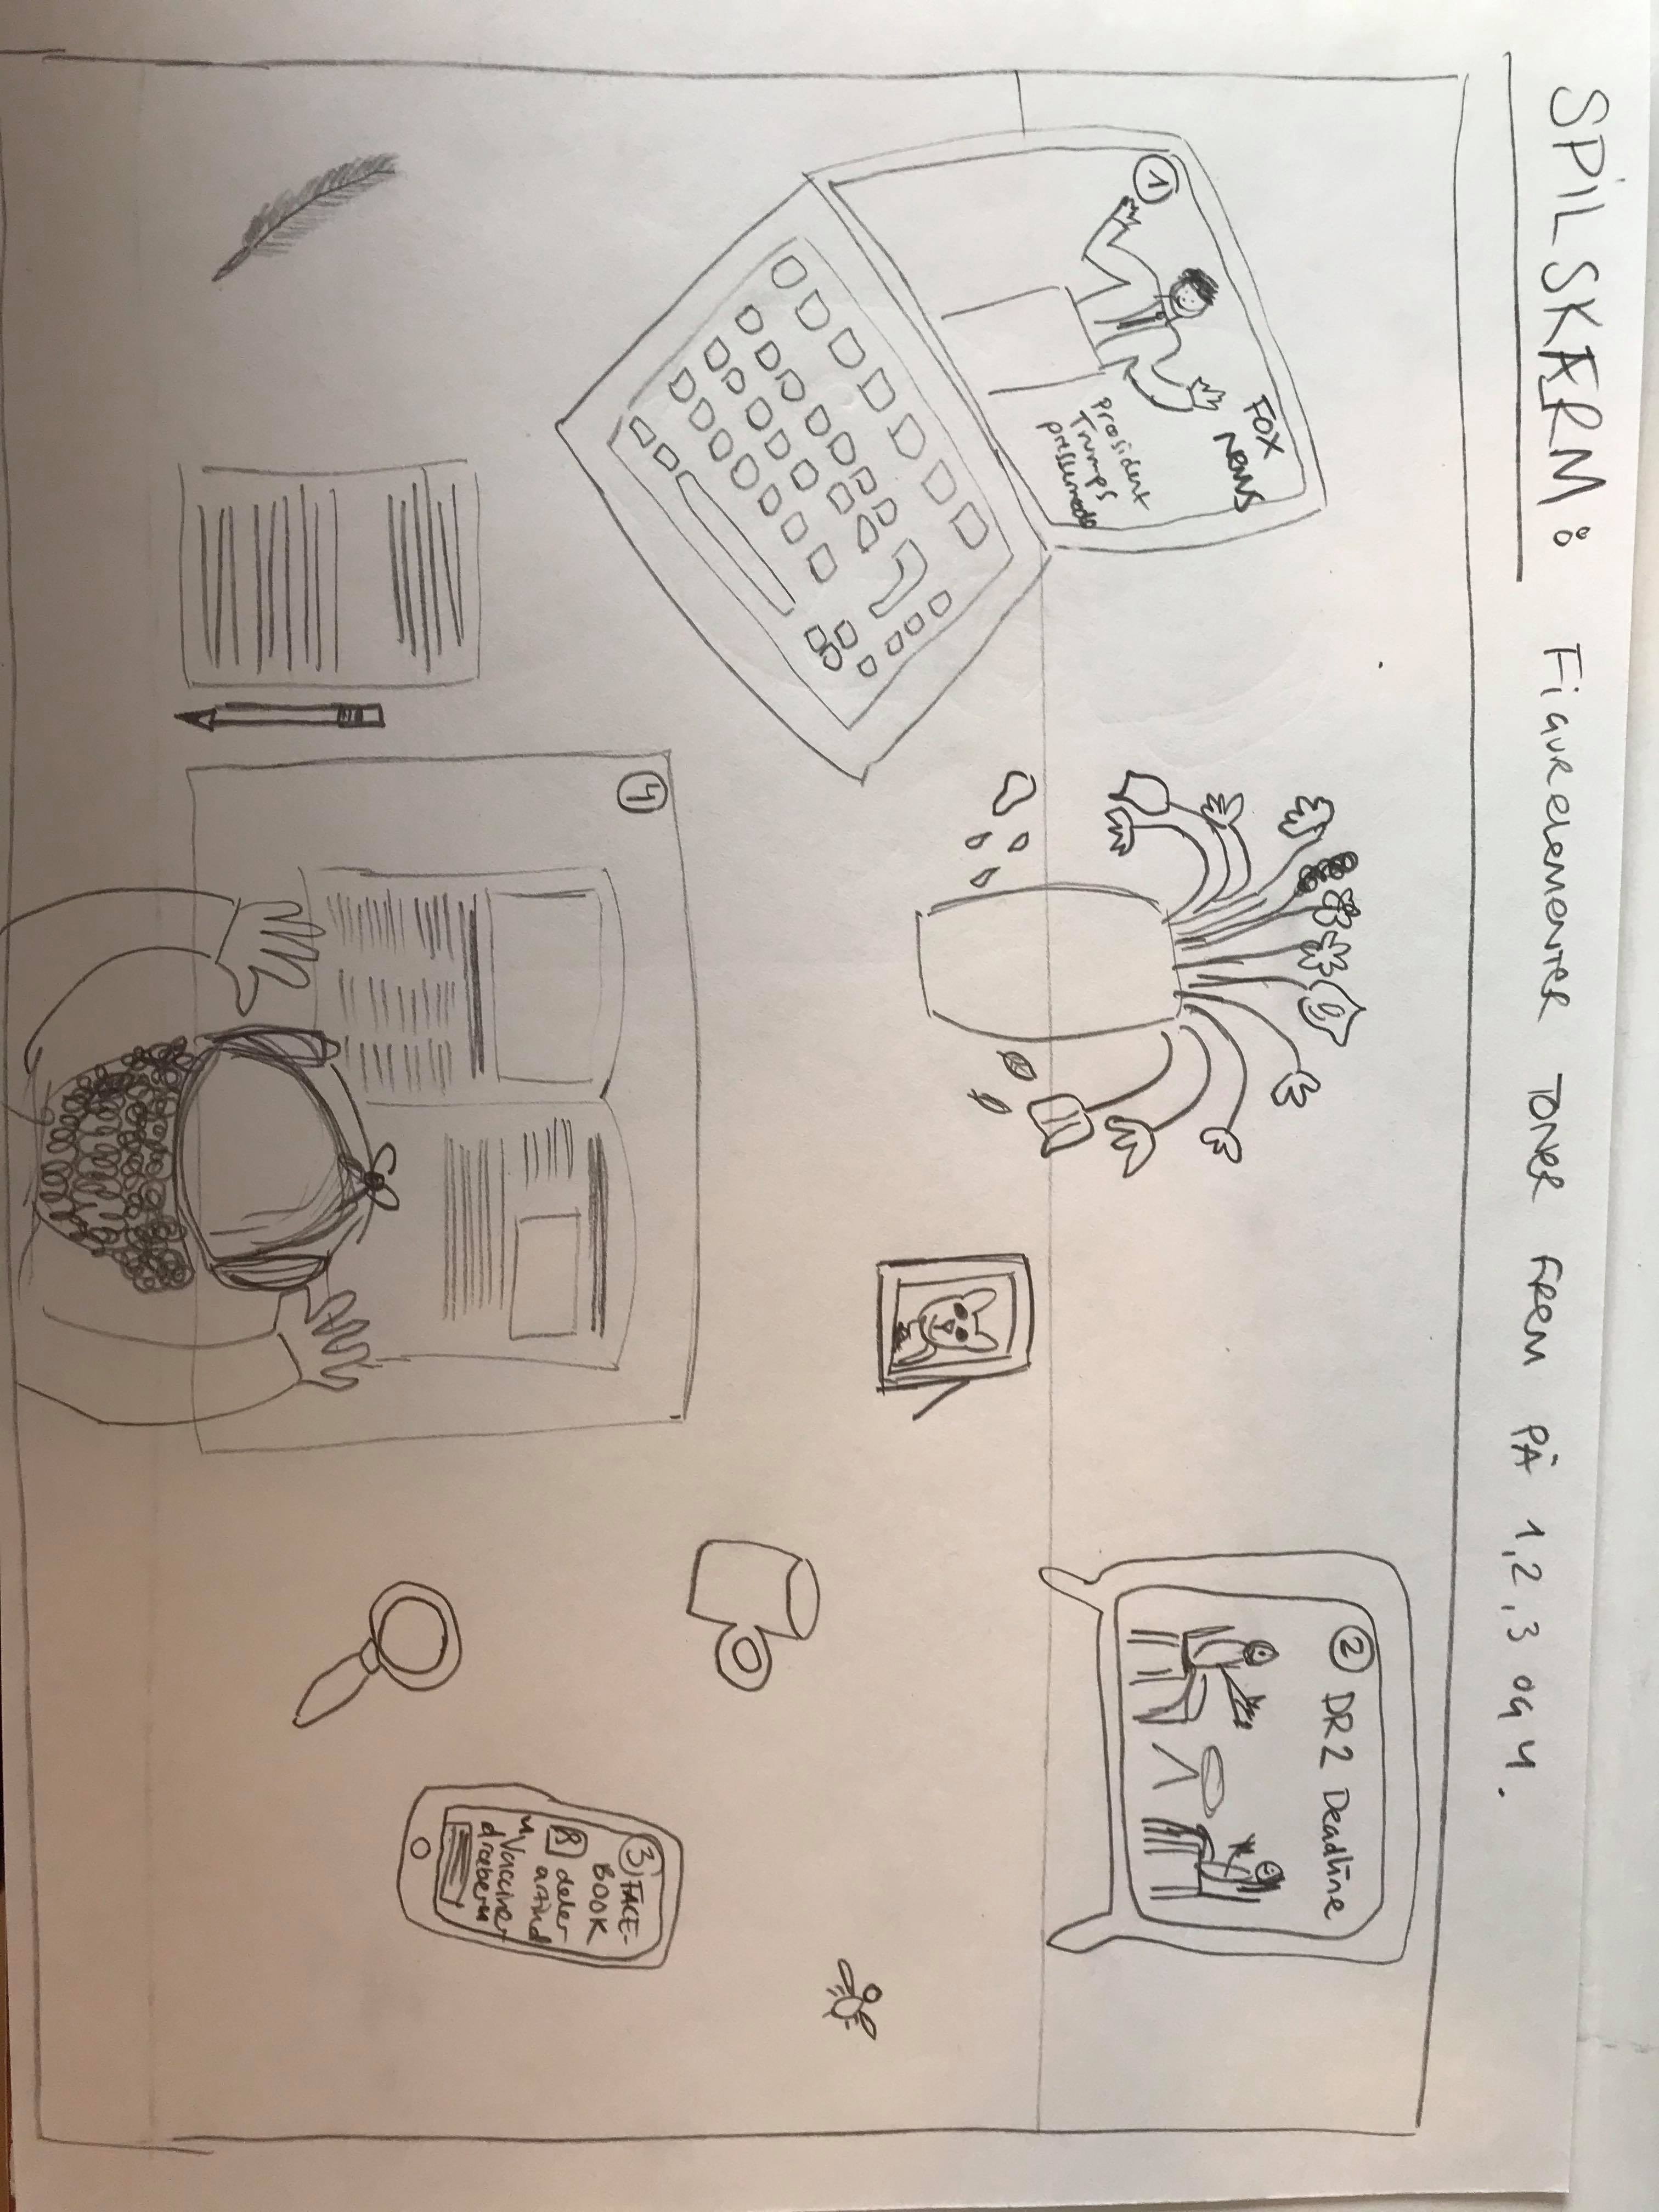 SPILSKÆRM: FIGURELEMENTER TONER FREM PÅ 1, 2, 3 OG 4.
1
FOX
NEWS
Præsident
Trumps
pressemøde
2 DR2 Deadline
3 FACE-
BOOK
deler
artikel
"Vacciner
dræber"
4